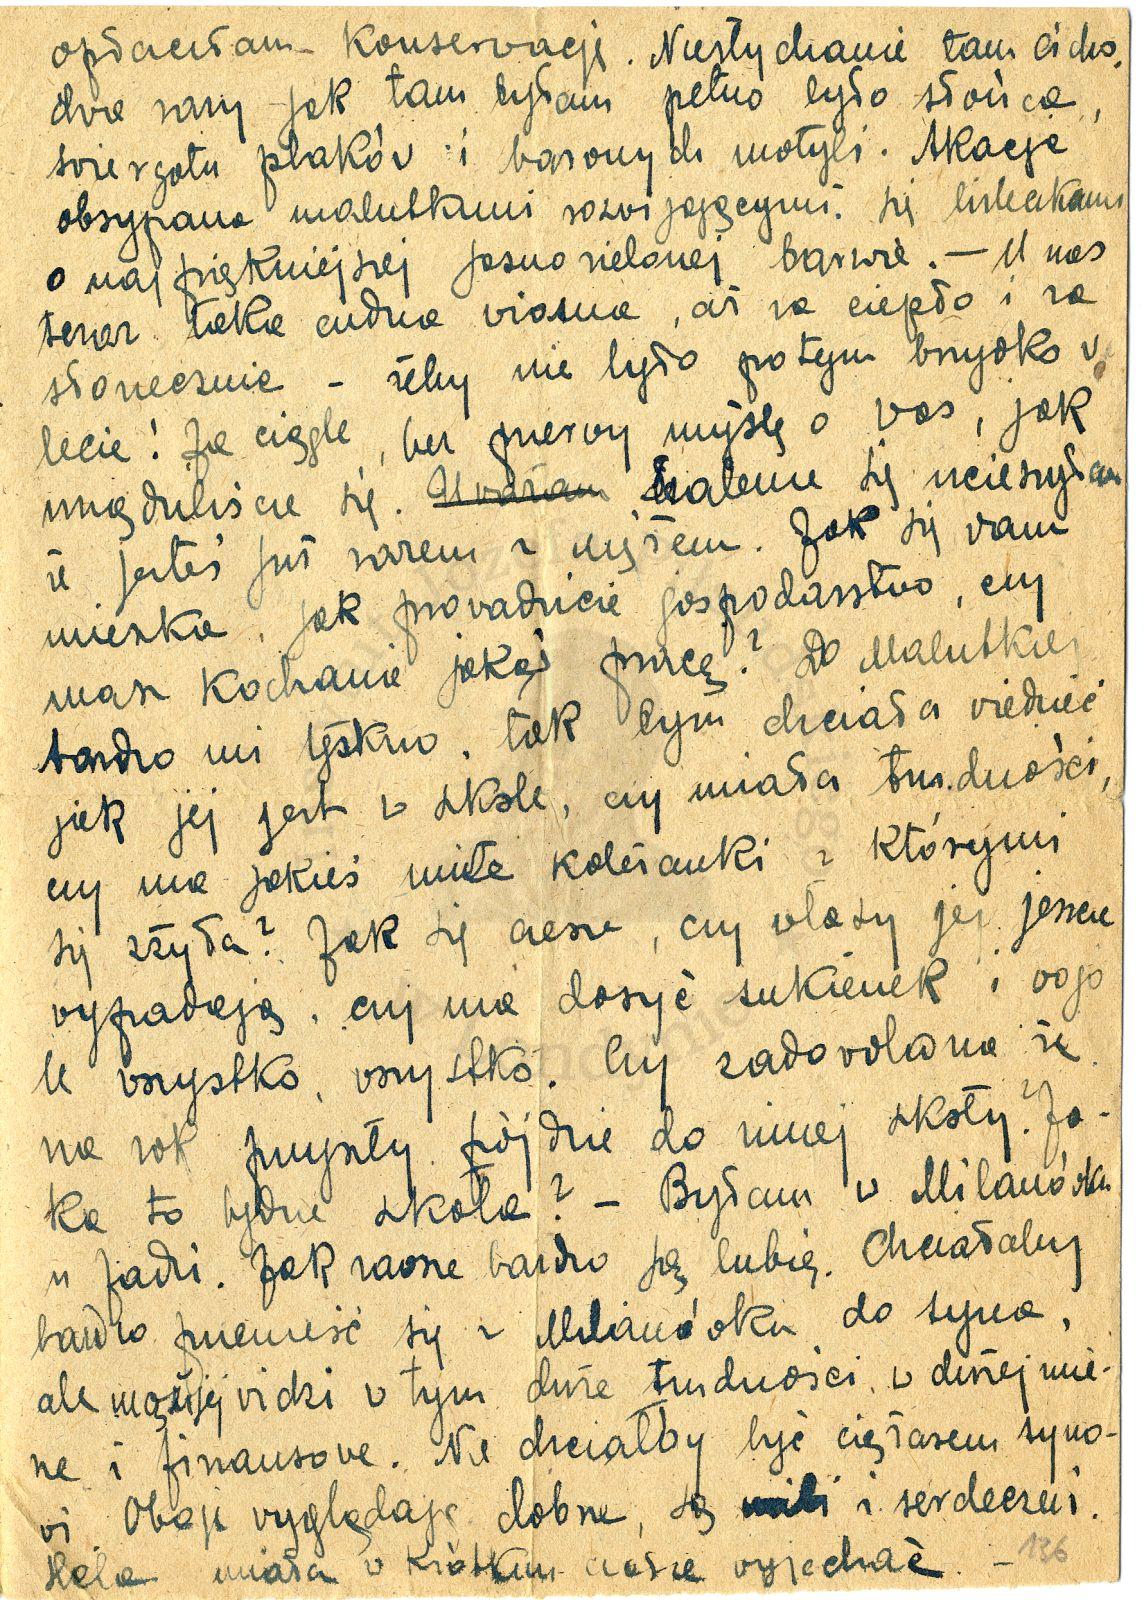 opłaciłam konserwację. Niesłychanie tam cicho,
dwa razy jak tam byłam pełno było słońca,
świergotu ptaków i barwnych motyli. Akacje
obsypane malutkimi rozwijającymi się listeczkami
o najpiękniejszej jasno zielonej barwie. — U nas
teraz taka cudna wiosna, aż za ciepło i za
słonecznie – żeby nie było potym brzydko w
lecie! Ja ciągle, bez przerwy myślę o Was, jak
urządziliście się. Uważam Szalenie się ucieszyłam
że jesteś już razem z mężem. Jak się wam
mieszka, jak prowadzicie gospodarstwo, czy
masz kochanie jakąś pracę? Do Malutkiej
bardzo mi tęskno, tak bym chciała wiedzieć
jak jej jest w szkole, czy miała trudności,
czy ma jakieś miłe koleżanki z którymi
się zżyła? Jak się czesze, czy włosy jej jeszcze
wypadają, czy ma dosyć sukienek i wogó
le wszystko, wszystko. Czy zadowolona że
na rok przyszły pójdzie do innej szkoły? Ja-
ka to będzie szkoła? – Byłam w Milanówku
u Jadzi. Jak zawsze bardzo ją lubię. Chciałaby
bardzo przenieść się z Milanówka do syna,
ale mąż jej widzi w tym duże trudności w dużej mie-
rze i finansowe. Nie chciałby być ciężarem syno-
wi Oboje wyglądają dobrze, są mili i serdeczni.
Hela miała w krótkim czasie wyjechać. –
136